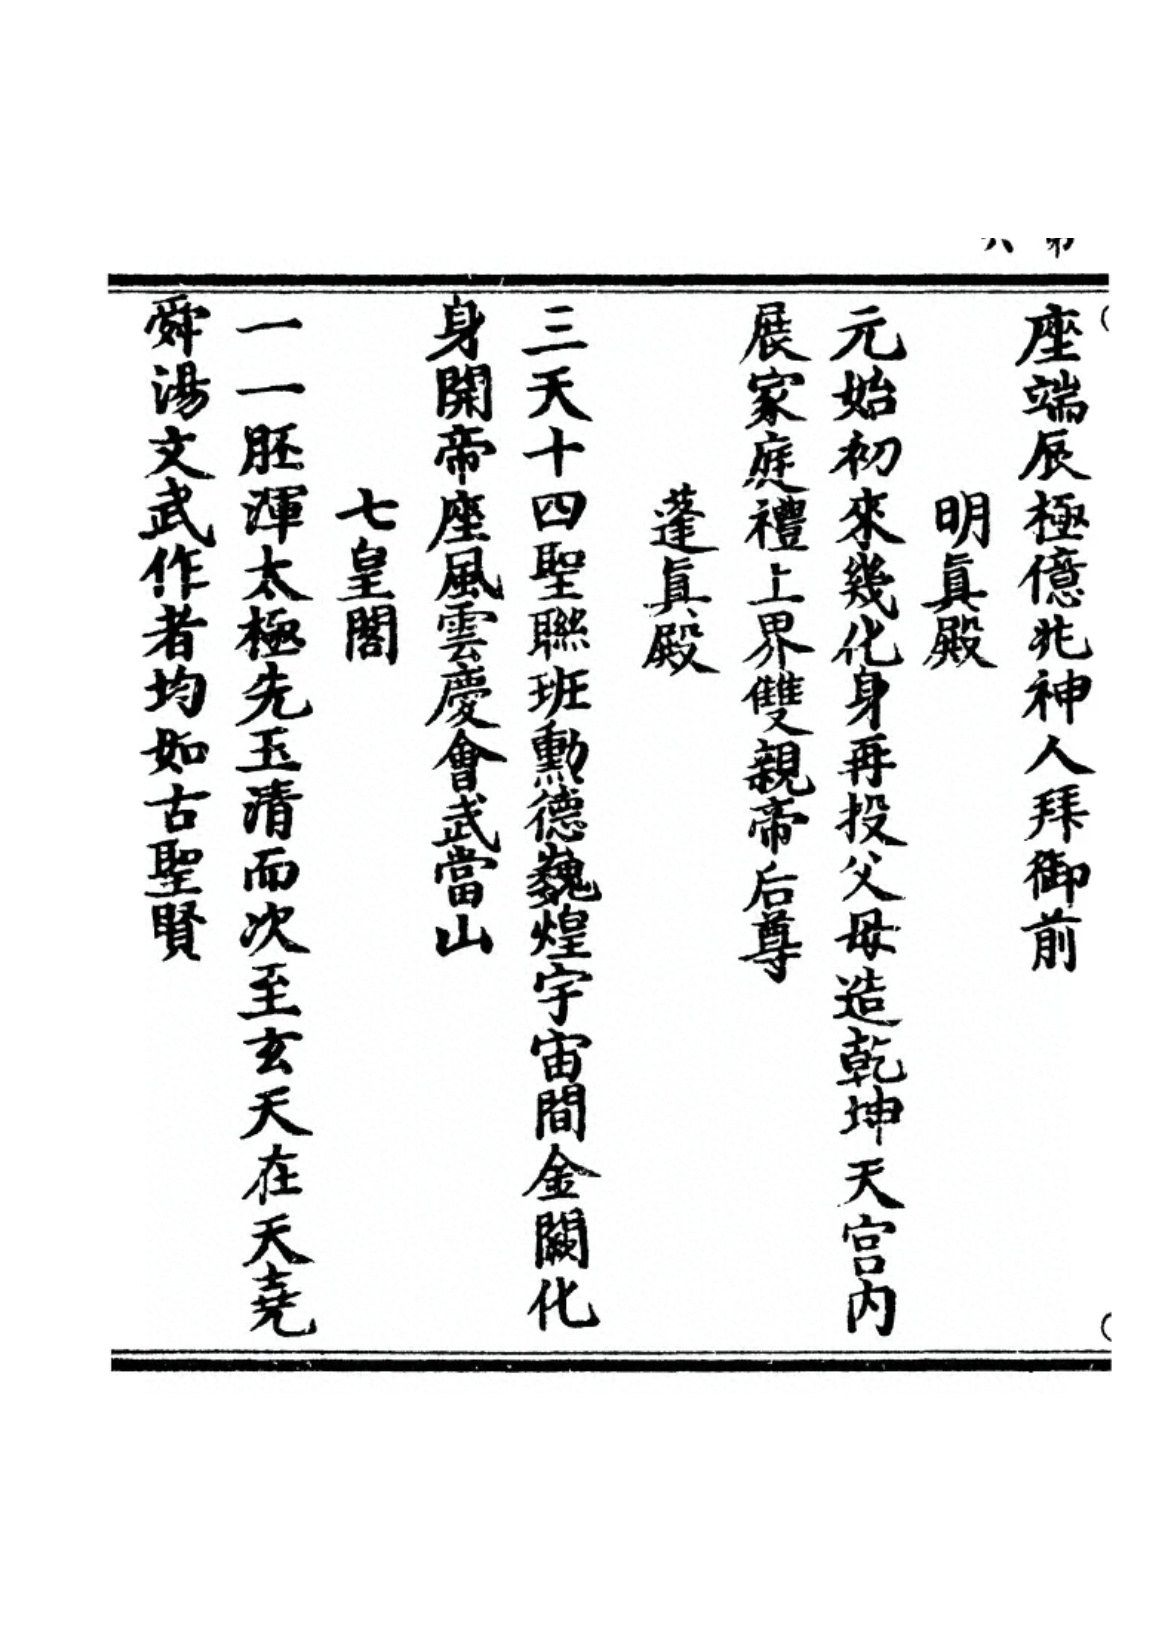 座端辰極億兆神人拜御前
明眞殿
元始初來幾化身再投父母造乾坤天宫内
展家庭禮上界雙親帝后尊
蓬眞殿
三天十四聖聯班勳德巍煌宇宙間金闕化
身開帝座風雲慶會武當山
七皇閣
一一胚渾太極先玉清而次至玄天在天堯
舜湯文武作者均如古聖賢